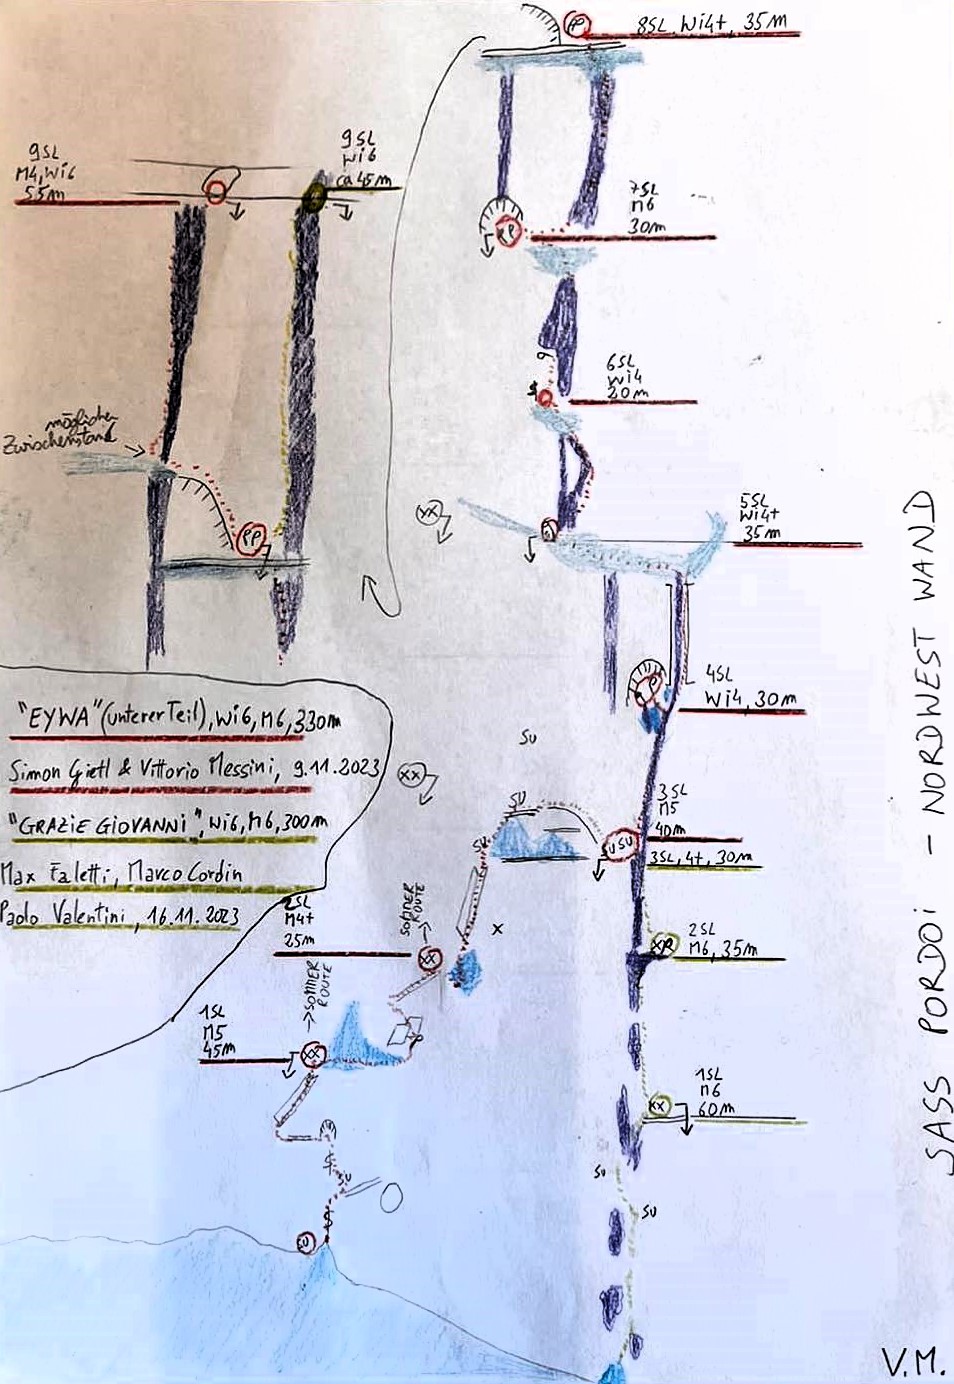 8SL, Wi4+, 35m
PP
9SL
M4, Wi6
55m
9SL
Wi6
ca 45m
7SL
M6
30m
6SL
Wi4
20m
möglicher
Zwischenstand
PP
XX
5SL
Wi4+
35m
4SL
Wi4, 30m
P
"EYWA" (unterer Teil), Wi6, M6, 330m
Simon Gietl & Vittorio Messini, 9.11.2023
"GRAZIE GIOVANNI", Wi6, M6, 300m
Max Faletti, Marco Cordin
Paolo Valentini, 16.11.2023
SU
XX
SU
SU
3SL
M5
40m
SUSU
3SL, 4+, 30m
2SL
M4+
25m
SOMMER
ROUTE
XX
X
XP
2SL
M6, 35m
SOMMER
ROUTE
1SL
M5
45m
XX
P
1SL
M6
60m
XX
SU
SU
SU
SU
SASS PORDOI - NORDWEST WAND
V.M.